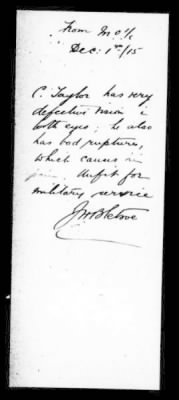 From M O i/c
Dec. 1st/15
C. Taylor has very
defective vision in
both eyes; he also
has bad ruptures,
which causes
pain. Unfit for
military service